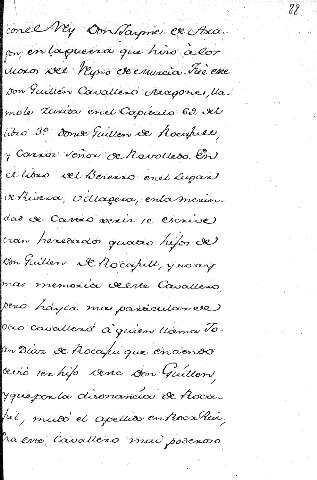 88
con el Rey Don Jayme de Ara-
gon, en la guerra que hiso à los
Moros del Reyno de Murcia. Fue este
Don Guillen Cavallero Aragones, lla-
molo Zurita en el Capitulo 62 del
libro 3º Don de Guillen de Rocafull,
y Carròz Señor de Rebolledo. En
el libro del Becerro en el Lugar
de Rivera, Villagera, en la merin-
dad de Castro se escrive
eran heredados quatro hijos de
Don Guillen de Rocafull, y no ay
mas memoria de este Cavallero,
pero hàyla mui particular de
otro cavallero à quien llama Jo-
an Diaz de Rocafu que
deviò ser hijo deste Don Guillen,
y que por la disonancia de Roca-
ful, mudò el apellido en Roca
era este Cavallero mui poderoso